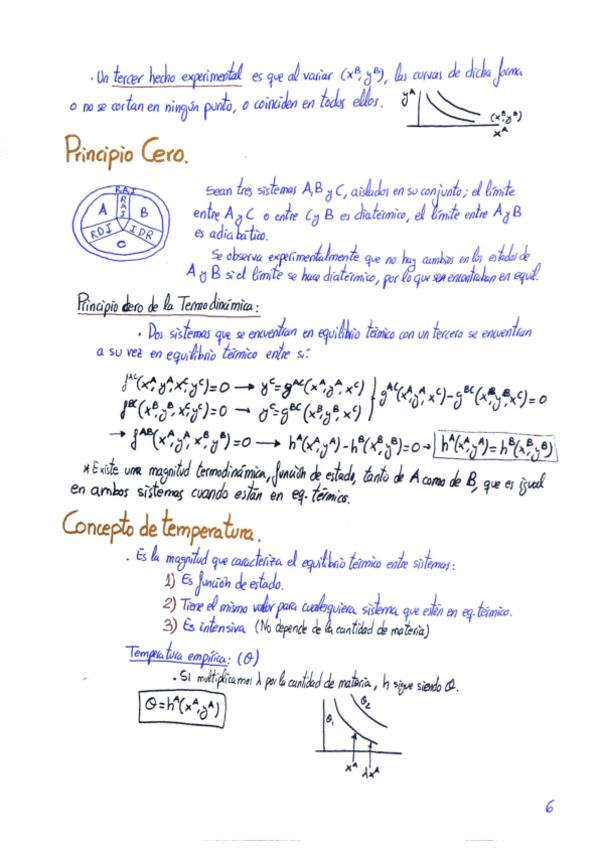 · Un tercer hecho experimental es que al variar (xᴮ, yᴮ), las curvas de dicha forma
o no se cortan en ningún punto, o coinciden en todos ellos.
yᴬ
(xᴮ, yᴮ)
xᴬ
Principio Cero.
RAI
A
RAI
B
RDI
IDR
C
Sean tres sistemas A, B y C, aislados en su conjunto; el límite
entre A y C o entre C y B es diatérmico, el límite entre A y B
es adiabático.
Se observa experimentalmente que no hay cambios en los estados de
A y B si el límite se hace diatérmico, por lo que se encontraban en equil.
Principio cero de la Termodinámica:
· Dos sistemas que se encuentran en equilibrio térmico con un tercero se encuentran
a su vez en equilibrio térmico entre sí:
fᴬᶜ(xᴬ, yᴬ, xᶜ, yᶜ)=0 → yᶜ=gᴬᶜ(xᴬ, yᴬ, xᶜ) } gᴬᶜ(xᴬ, yᴬ, xᶜ)-gᴮᶜ(xᴮ, yᴮ, xᶜ)=0
fᴮᶜ(xᴮ, yᴮ, xᶜ, yᶜ)=0 → yᶜ=gᴮᶜ(xᴮ, yᴮ, xᶜ)
→ fᴬᴮ(xᴬ, yᴬ, xᴮ, yᴮ)=0 → hᴬ(xᴬ, yᴬ)-hᴮ(xᴮ, yᴮ)=0 → hᴬ(xᴬ, yᴬ)=hᴮ(xᴮ, yᴮ)
* Existe una magnitud termodinámica, función de estado, tanto de A como de B, que es igual
en ambos sistemas cuando están en eq. térmico.
Concepto de temperatura.
· Es la magnitud que caracteriza el equilibrio térmico entre sistemas:
1) Es función de estado.
2) Tiene el mismo valor para cualesquiera sistema que estén en eq. térmico.
3) Es intensiva (No depende de la cantidad de materia)
Temperatura empírica: (θ)
· Si multiplicamos λ por la cantidad de materia, h sigue siendo θ.
θ=hᴬ(xᴬ, yᴬ)
θ₁
θ₂
xᴬ
λxᴬ
6